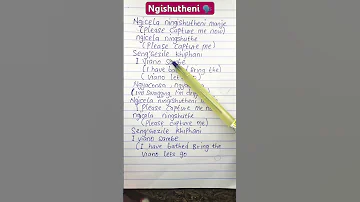 Ngishutheni
Ngicela ningishutheni manje
(Please Capture me now)
ngicela ningishuthe
(Please Capture me)
Seng'Gezile Khiphani
1 Viano Sambe
(I have bathed Bring the
Viano Let's
(I'm Swagging I'm
Ngicela ningishutheni
(Please Capture me now)
ngicela ningishuthe
(Please Capture me)
Seng'Gezile Khiphani
1 Viano Sambe
(I have bathed Bring the
Viano Lets go